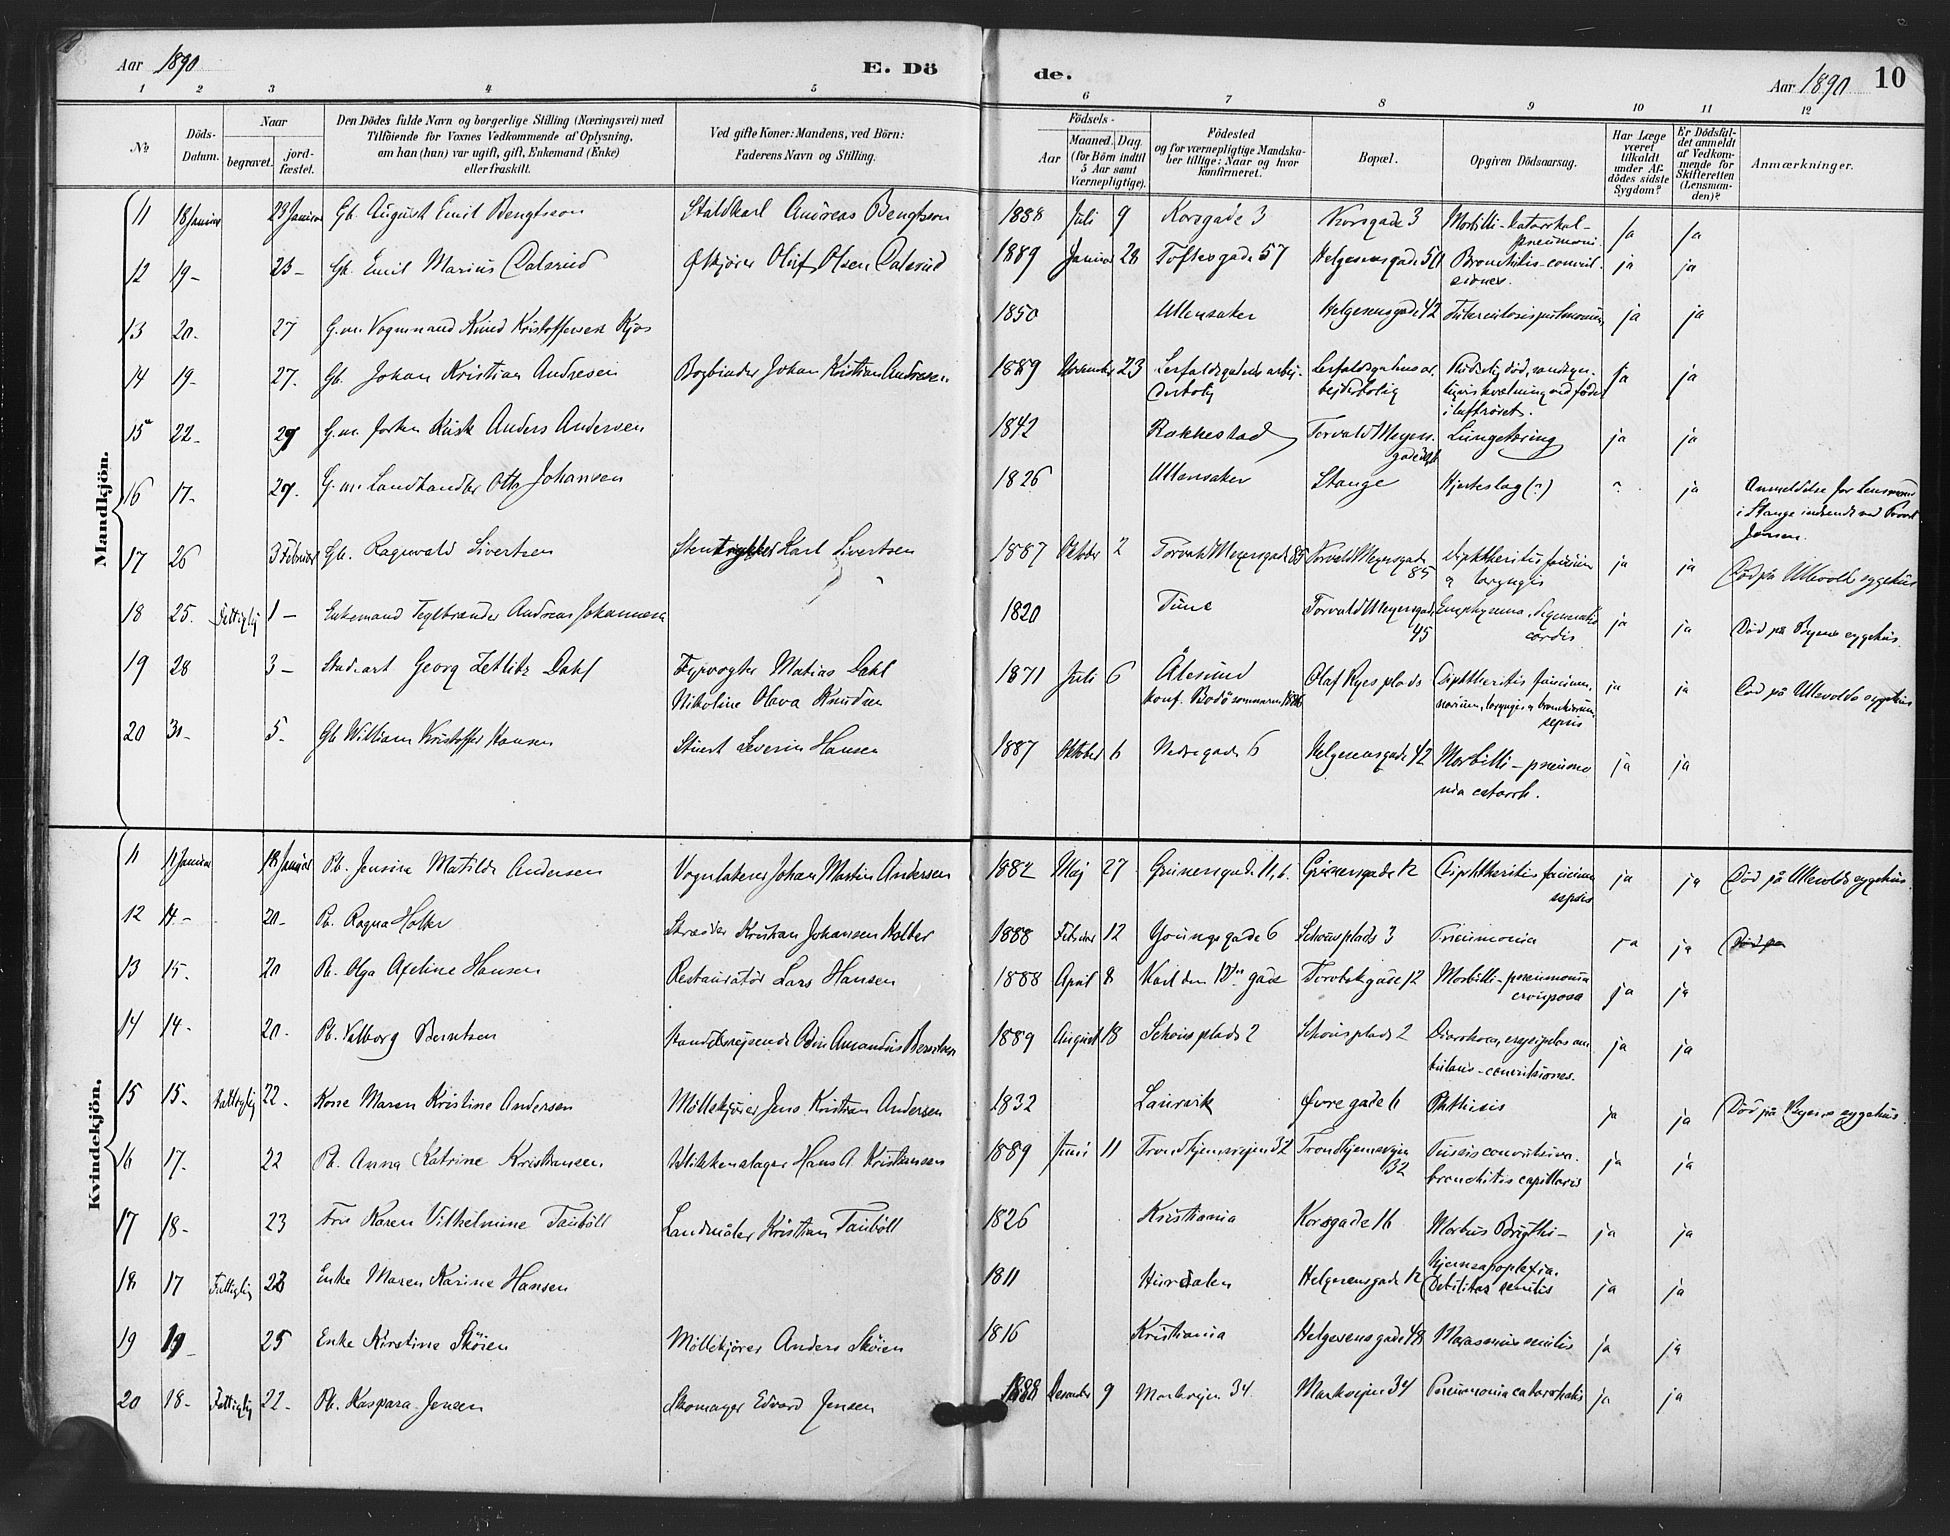 Aar 1890
E. Dö
de.
Aar 1890
10
1 2 3 4 5 6 7 8 9 10 11 12
No
Döds-
Datum.
Naar
begravet.
jord-
fæstet.
Den Dödes fulde Navn og borgerlige Stilling (Næringsvei) med
Tilföiende for Voxnes Vedkommende af Oplysning,
om han (hun) var ugift, gift, Enkemand (Enke)
eller fraskilt.
Ved gifte Koner: Mandens, ved Börn:
Faderens Navn og Stilling.
Födsels-
Aar
Maaned. Dag.
(for Börn indtil
5 Aar samt
Værnepligtige).
Födested
og for værnepligtige Mandska-
ber tillige: Naar og hvor
konfirmeret.
Bopæl.
Opgiven Dödsaarsag.
Har Læge
været
tilkaldt
under Af-
dödes sidste
Sygdom?
Er Dödsfal-
det anmeldt
af Vedkom-
mende for
Skifteretten
(Lensman-
den)?
Anmærkninger.
Mandkjön.
11 18 Januar 23 Januar Gb. August Emil Bengtson Staldkarl Andreas Bengtson 1888 Juli 9 Korsgade 3 Korsgade 3 Morbilli-katarrhal- ja ja
pneumoni.
12 19- 23- Gb. Emil Marius Dalerud Ølkjører Oluf Olsen Dalerud 1889 Januar 28 Toftesgade 57 Helgesensgade 50 Bronchitis-convul- ja ja
siones.
13 20- 27 G.m. Vognmand Knud Kristoffersen Kjos 1850 Ullensaker Helgesensgade 42 Tuberculosis pulmonum ja ja
14 19- 27. Gb. Johan Kristian Andresen Bogbinder Johan Kristian Andresen 1889 November 23 Lerfaldsgadens arbej- Lerfaldsgadens ar- Pludselig død, sandsyn- ja ja
derbolig bejderbolig ligvis kvælning ved føde
i luftrøret.
15 22- 27 G.m. Anders Andersen 1842 Rakkestad Torvald Meyers- Lungetæring ja ja
16 17- 27. G.m. Landhandler Otto Johansen 1826 Ullensaker Stange Hjerteslag (?) ? ja Anmeldelse for Lensmand
i Stange indsendt ved Provst
Jensen.
17 26 3 Februar Gb. Ragnvald Sivertsen Stentrykker Karl Sivertsen 1887 Oktober 2 Torvald Meyersgade 85 Torvald Meyersgade Diphtheritis faucium ja ja Død på Ullevolds sygehus
85 & laryngis
18 25. Fattiglig 1- Enkemand Teglbrænder Andreas Johannesen 1820 Tune Torvald Meyersgade Emphysema, Degeneratio ja ja Død på Byens sygehus.
45 cordis
19 28 3- Stud. art Georg Zetlitz Dahl Fyrvogter Matias Dahl 1871 Juli 6 Ålesund Olaf Ryes plads Diphtheritis faucium, ja ja Død på Ullevolds sygehus
Nikoline Olava Knudsen konf. Bodø sommeren 1886 narium, laryngis & bronchiorum,
sepsis
20 30- 5- Gb William Kristoffer Hansen Stuert Severin Hansen 1887 Oktober 6 Nedregade 6 Helgesensgade 42 Morbilli-pneumo ja ja
nia catarrh.
Kvindekjön.
11 11 Januar 18 Januar Pb. Jensine Matilde Andersen Vognlakerer Johan Martin Andersen 1882 Maj 27 Grünersgade 11, b. Grünersgade 12 Diphtheritis faucium ja ja Død på Ullevolds sygehus.
sepsis
12 14- 20- Pb. Ragna Holter Skrædder Kristian Johansen Holter 1888 Februar 12 Youngsgade 6 Schousplads 3 Pneumonia ja ja Død på
13 15- 20 Pb. Olga Axeline Hansen Restauratør Lars Hansen 1888 April 8 Karl den 12tes gade Torvbakgade 12 Morbilli-pneumonia ja ja
crouposa
14 14- 20- Pb. Valborg Berntsen Handelsrejsende Odin Amandus Berntsen 1889 August 18 Schousplads 2 Schousplads 2 Diarrhoea, erysipelas am ja ja
bulans-convulsiones.
15 15- Fattiglig 22- Kone Maren Kristine Andersen Møllekjører Jens Kristian Andersen 1832 Laurvik Øvregade 6 Phthisis ja ja Død på Byens sygehus.
16 17- 22 Pb. Anna Katrine Kristiansen Blikkenslager Hans A. Kristiansen 1889 Juni 11 Trondhjemsvejen 32 Trondhjemsvejen Tussis convulsiva. ja ja
32 bronchitis capillaris
17 18- 23 Fru Karen Vilhelmine Taubøll Landmåler Kristian Taubøll 1826 Kristiania Korsgade 16 Morbus Brigthi- ja ja
Hjerneapoplexia.
18 17 Fattiglig 23 Enke Maren Karine Hansen 1811 Hurdalen Helgesensgade 12 Debilitas senilis ja ja
19 19 25 Enke Kirstine Skøien Møllekjører Anders Skøien 1816 Kristiania Helgesensgade 48 Marasmus senilis ja ja
20 18- Fattiglig 22- Pb. Kaspara Jensen Skomager Edvard Jensen 1888 Desember 9 Markvejen 34 Markvejen 34 Pneumonia catarrhalis ja ja